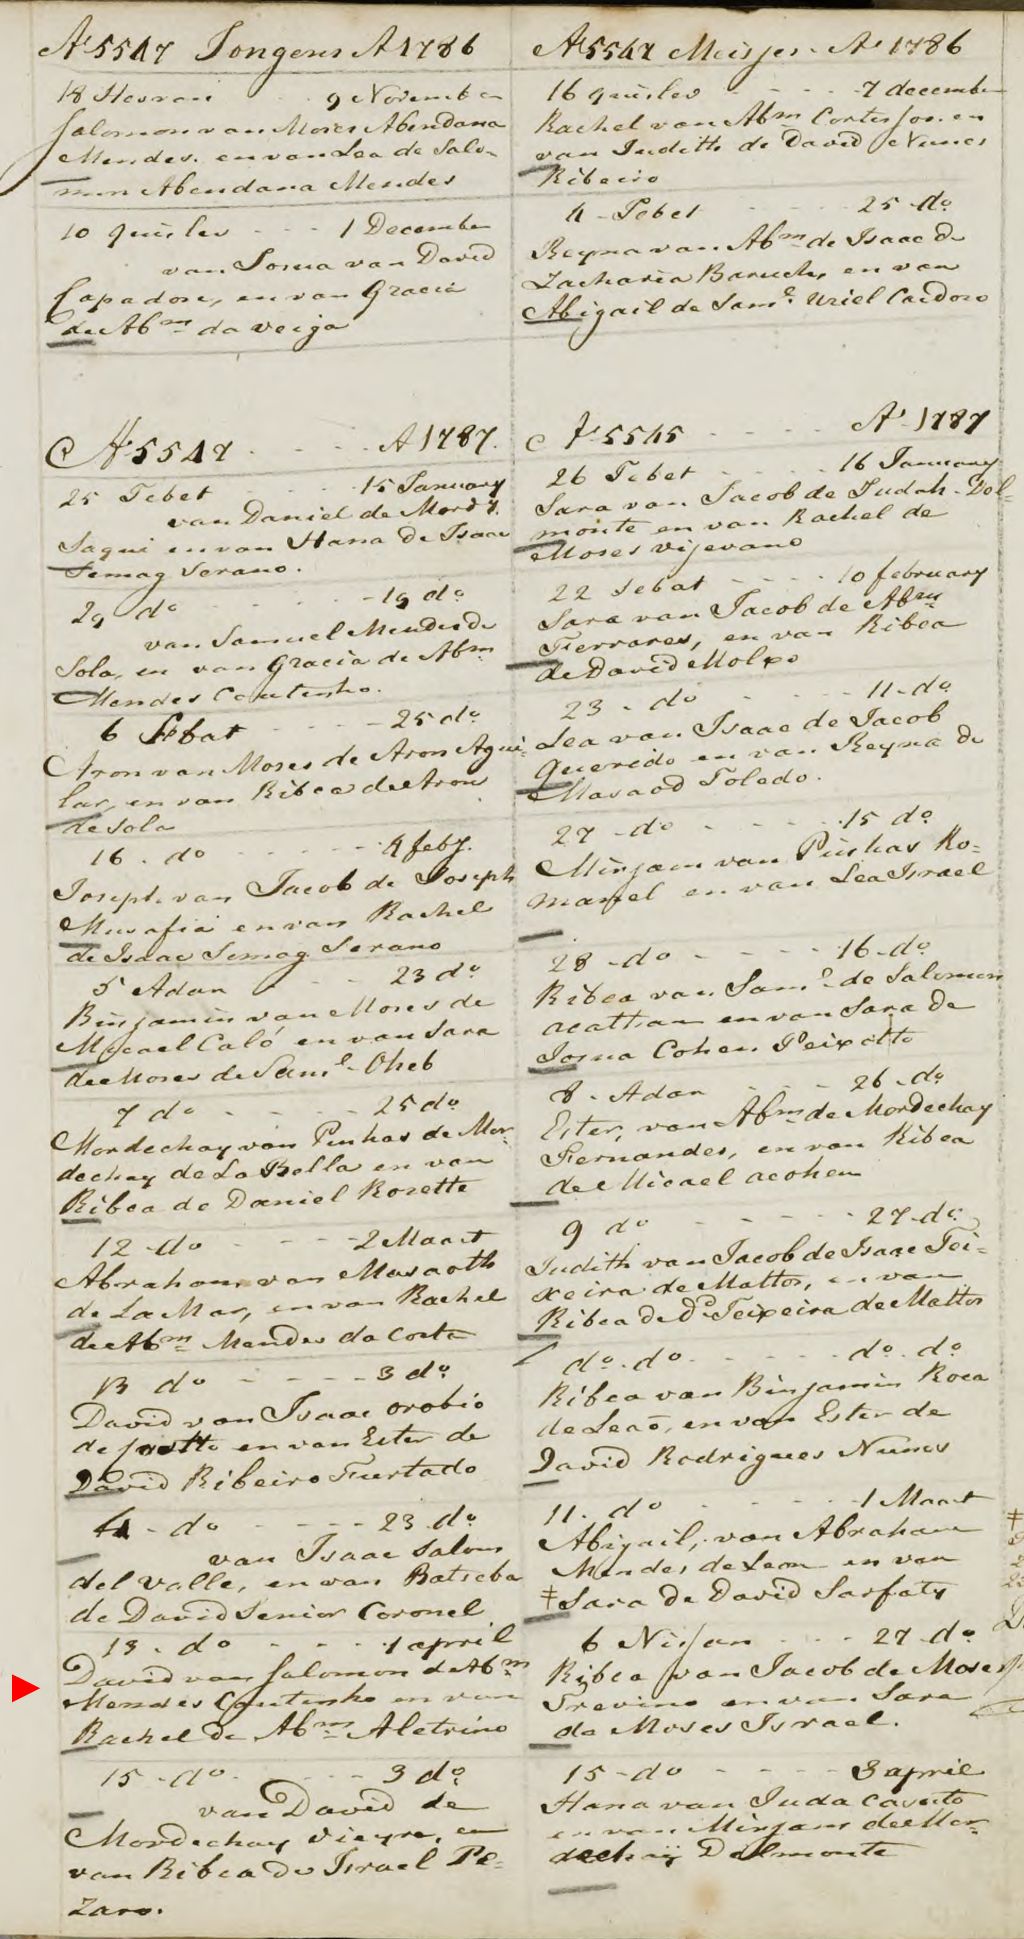 Aº 5547 Jongens A 1786
18 Hesvan - - 9 November
Salomon van Moses Abendana
Mendes. en van Lea de Salo-
mon Abendana Mendes
10 quislev - - - 1 December
van Josua van David
Capadose, en van Gracia
de Abm da Veiga
Aº 5547 - - - - A 1787.
25 Tebet - - - 15 January
van Daniel de Mordy.
Saqui en van Hana de Isaac
Semag Serano.
29 do - - - - 19 do
van Samuel Mendes de
Sola, en van Gracia de Abm
Mendes Coutinho.
6 Sebat - - - 25 do
Aron van Moses de Aron Agui-
lar, en van Ribca de Aron
de Sola
16. do - - - - 4 feby.
Joseph van Jacob de Joseph
Musafia en van Rachel
de Isaac Semag Serano
5 Adar - - - 23 do
Binjamin van Moses de
Micael Caló en van Sara
de Moses de Saml. Oheb
7 do - - - - 25 do
Mordechay van Pinhas de Mor-
dechay de La Bella en van
Ribca de Daniel Rosette
12 do - - - - 2 Maart
Abraham van Masaoth
de La Mar, en van Rachel
de Abm Mendes da Costa
13 do - - - - 3 do
David van Isaac orobio
de en van Ester de
David Ribeiro Furtado
4 - do - - - - 23 do
van Isaac Salom
del Valle, en van Batseba
de David Senior Coronel
13. do - - - - 1 april
David van Salomon de Abm
Mendes Coutinho en van
Rachel de Abm Aletrino
15 - do - - - - 3 do
van David de
Mordechay Vieyra, en
van Ribca de Israel Pe-
zaro.
Aº 5547 Meisjes - Aº 1786
16 quislev - - - - 7 december
Rachel van Abm Cortes Jos. en
van Judith de David Nunes
Ribeiro
4 - Tebet - - - - 25 do
Reyna van Abm de Isaac de
Zacharia Baruch, en van
Abigail de Saml. Uriel Cardozo
Aº 5545 - - - - Aº 1787
26 Tebet - - - - 16 January
Sara van Jacob de Judah Del-
monte en van Rachel de
Moses Vijevano
22 Sebat - - - - 10 february
Sara van Jacob de Abm
Ferrares, en van Ribca
de David Molxo
23 - do - - - - 11 - do
Lea van Isaac de Jacob
Querido en van Reyna de
Masaod Toledo.
27 - do - - - - 15 do
Mirjam van Pinhas Ro-
manel en van Lea Israel
28 - do - - - - 16 - do
Ribca van Saml. de Salomon
acathan en van Sara de
Josua Cohen Peixotto
8 - Adar - - - 26 - do
Ester, van Abm de Mordechay
Fernandes, en van Ribca
de Micael acohen
9 do - - - - 27 - do
Judith van Jacob de Isaac Tei-
xeira de Mattos, en van
Ribca de Do Teixeira de Mattos
do. do - - - - do. do
Ribca van Binjamin Roca
de Leaõ, en van Ester de
David Rodrigues Nunes
11. do - - - - 1 Maart
Abigail, van Abraham
Mendes de Leon en van
‡ Sara de David Sarfaty
6 Nisan - - - 27 do
Ribca van Jacob de Moses
Trevino en van Sara
de Moses Israel.
15 - do - - - - 3 april
Hana van Juda Casuto
en van Mirjam de Mor-
dechaij Delmonte